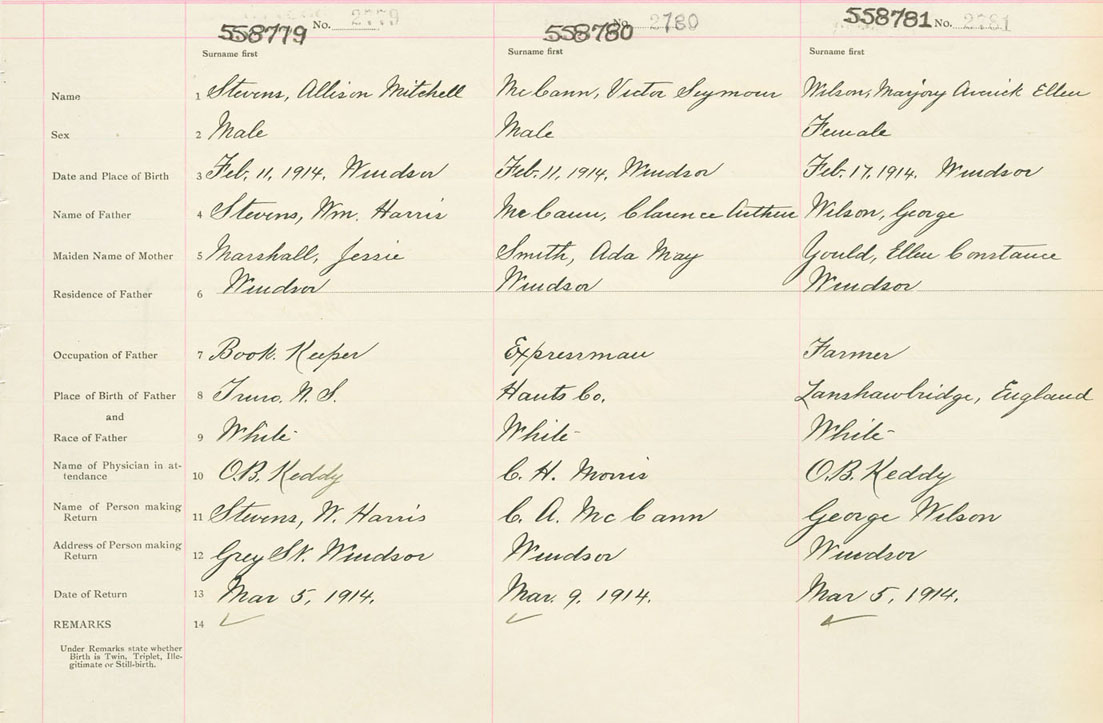 558779 No. 2779 558780 No. 2780 558781 No. 2781
Surname first Surname first Surname first
Name 1 Stevens, Allison Mitchell McCann, Victor Seymour Wilson, Marjory Ellen
Sex 2 Male Male Female
Date and Place of Birth 3 Feb. 11, 1914, Windsor Feb. 11, 1914, Windsor Feb. 17, 1914. Windsor
Name of Father 4 Stevens, Wm. Harris McCann, Clarence Arthur Wilson, George
Maiden Name of Mother 5 Marshall, Jessie Smith, Ada May Gould, Ellen Constance
Residence of Father 6 Windsor Windsor Windsor
Occupation of Father 7 Book Keeper Expressman Farmer
Place of Birth of Father 8 Truro. N. S. Hants Co. England
and
Race of Father 9 White White White
Name of Physician in at-
tendance 10 O.B. Keddy C. H. Morris O.B. Keddy
Name of Person making
Return 11 Stevens, W. Harris C. A. McCann George Wilson
Address of Person making
Return 12 Grey St. Windsor Windsor Windsor
Date of Return 13 Mar 5, 1914. Mar. 9, 1914. Mar 5, 1914.
REMARKS 14
Under Remarks state whether
Birth is Twin, Triplet, Ille-
gitimate or Still-birth.